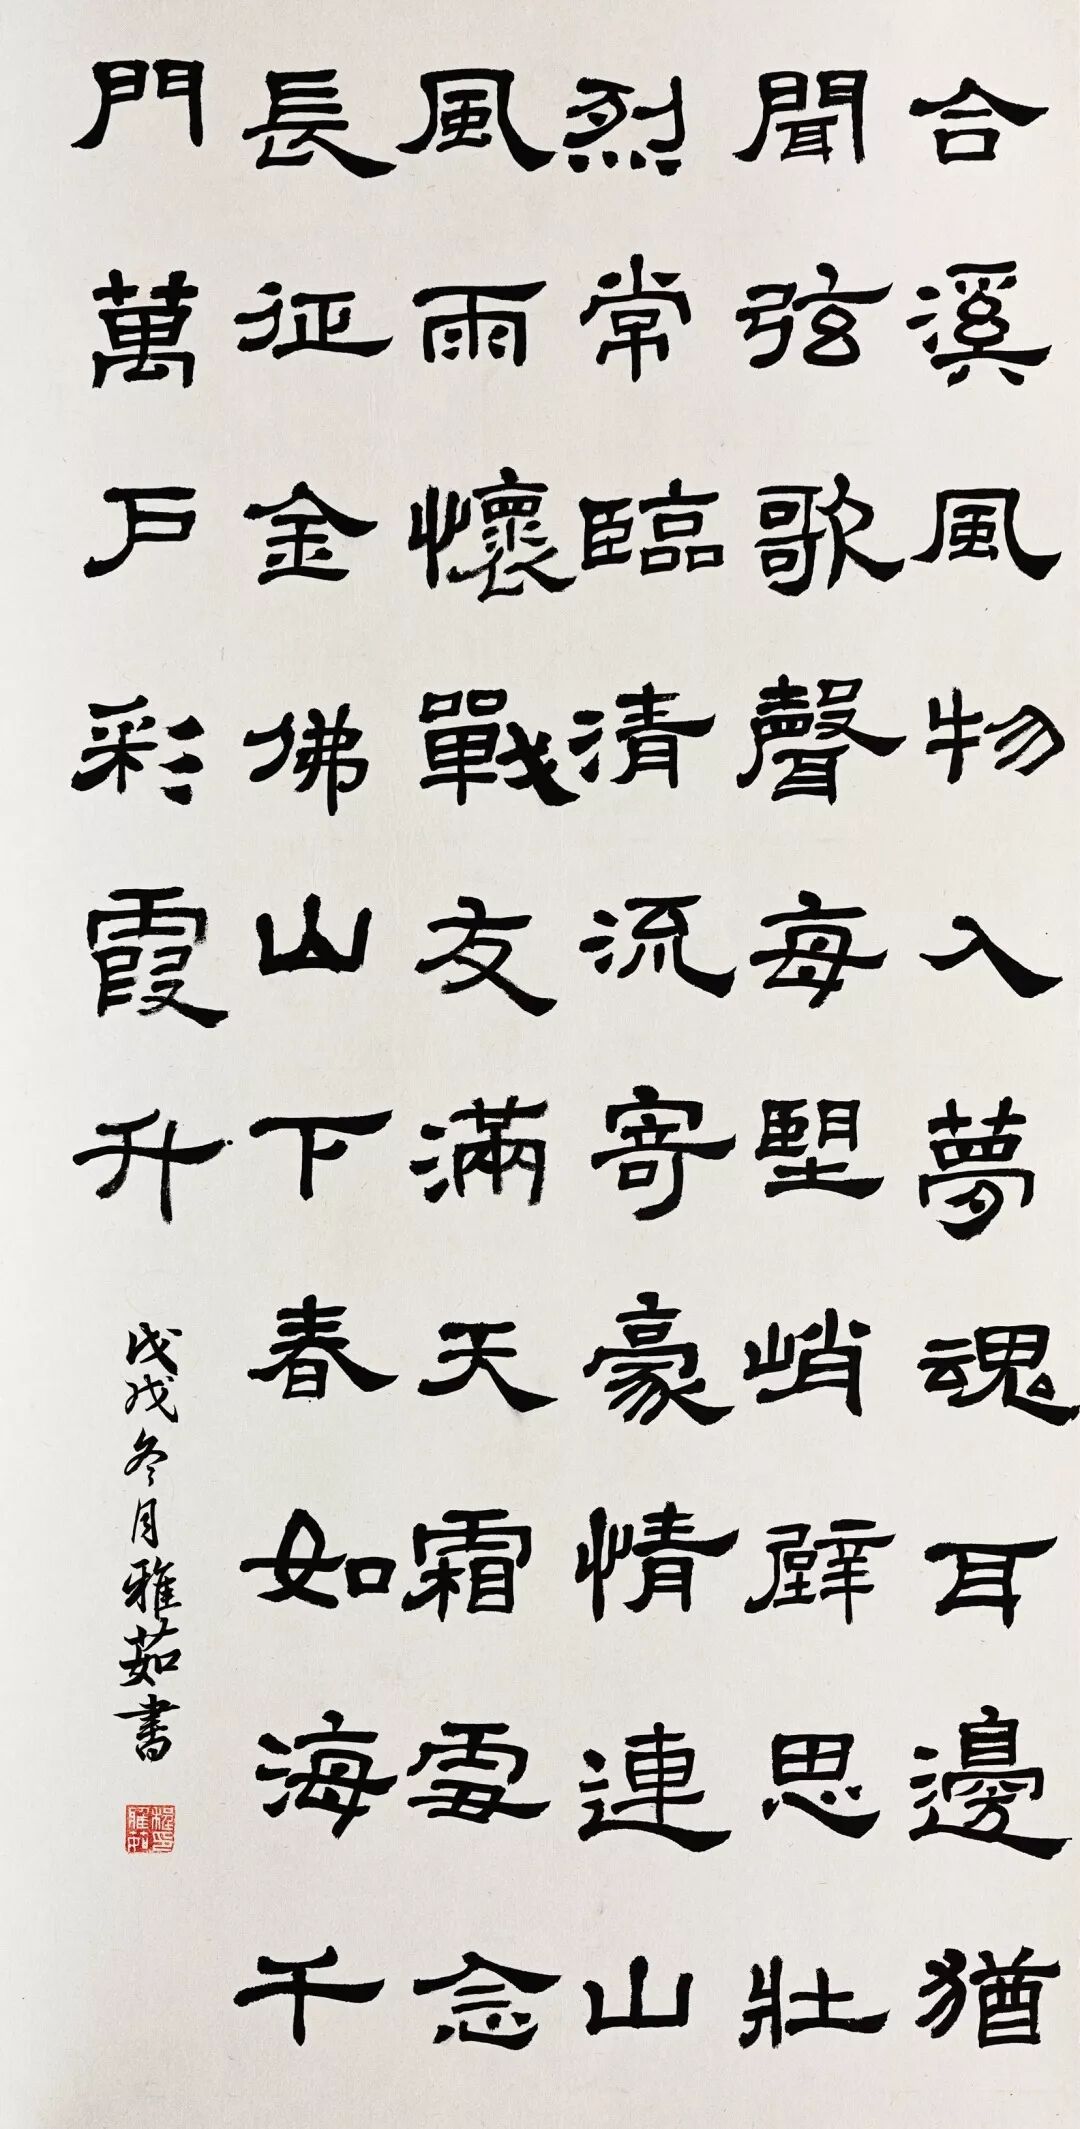 合溪風物入夢魂耳邊猶
聞弦歌聲每朢峭壁思壯
烈常臨清流寄豪情連山
風雨懷戰友滿天霜雪念
長征金佛山下春如海千
門萬戶彩霞升
戊戌冬月雅茹書